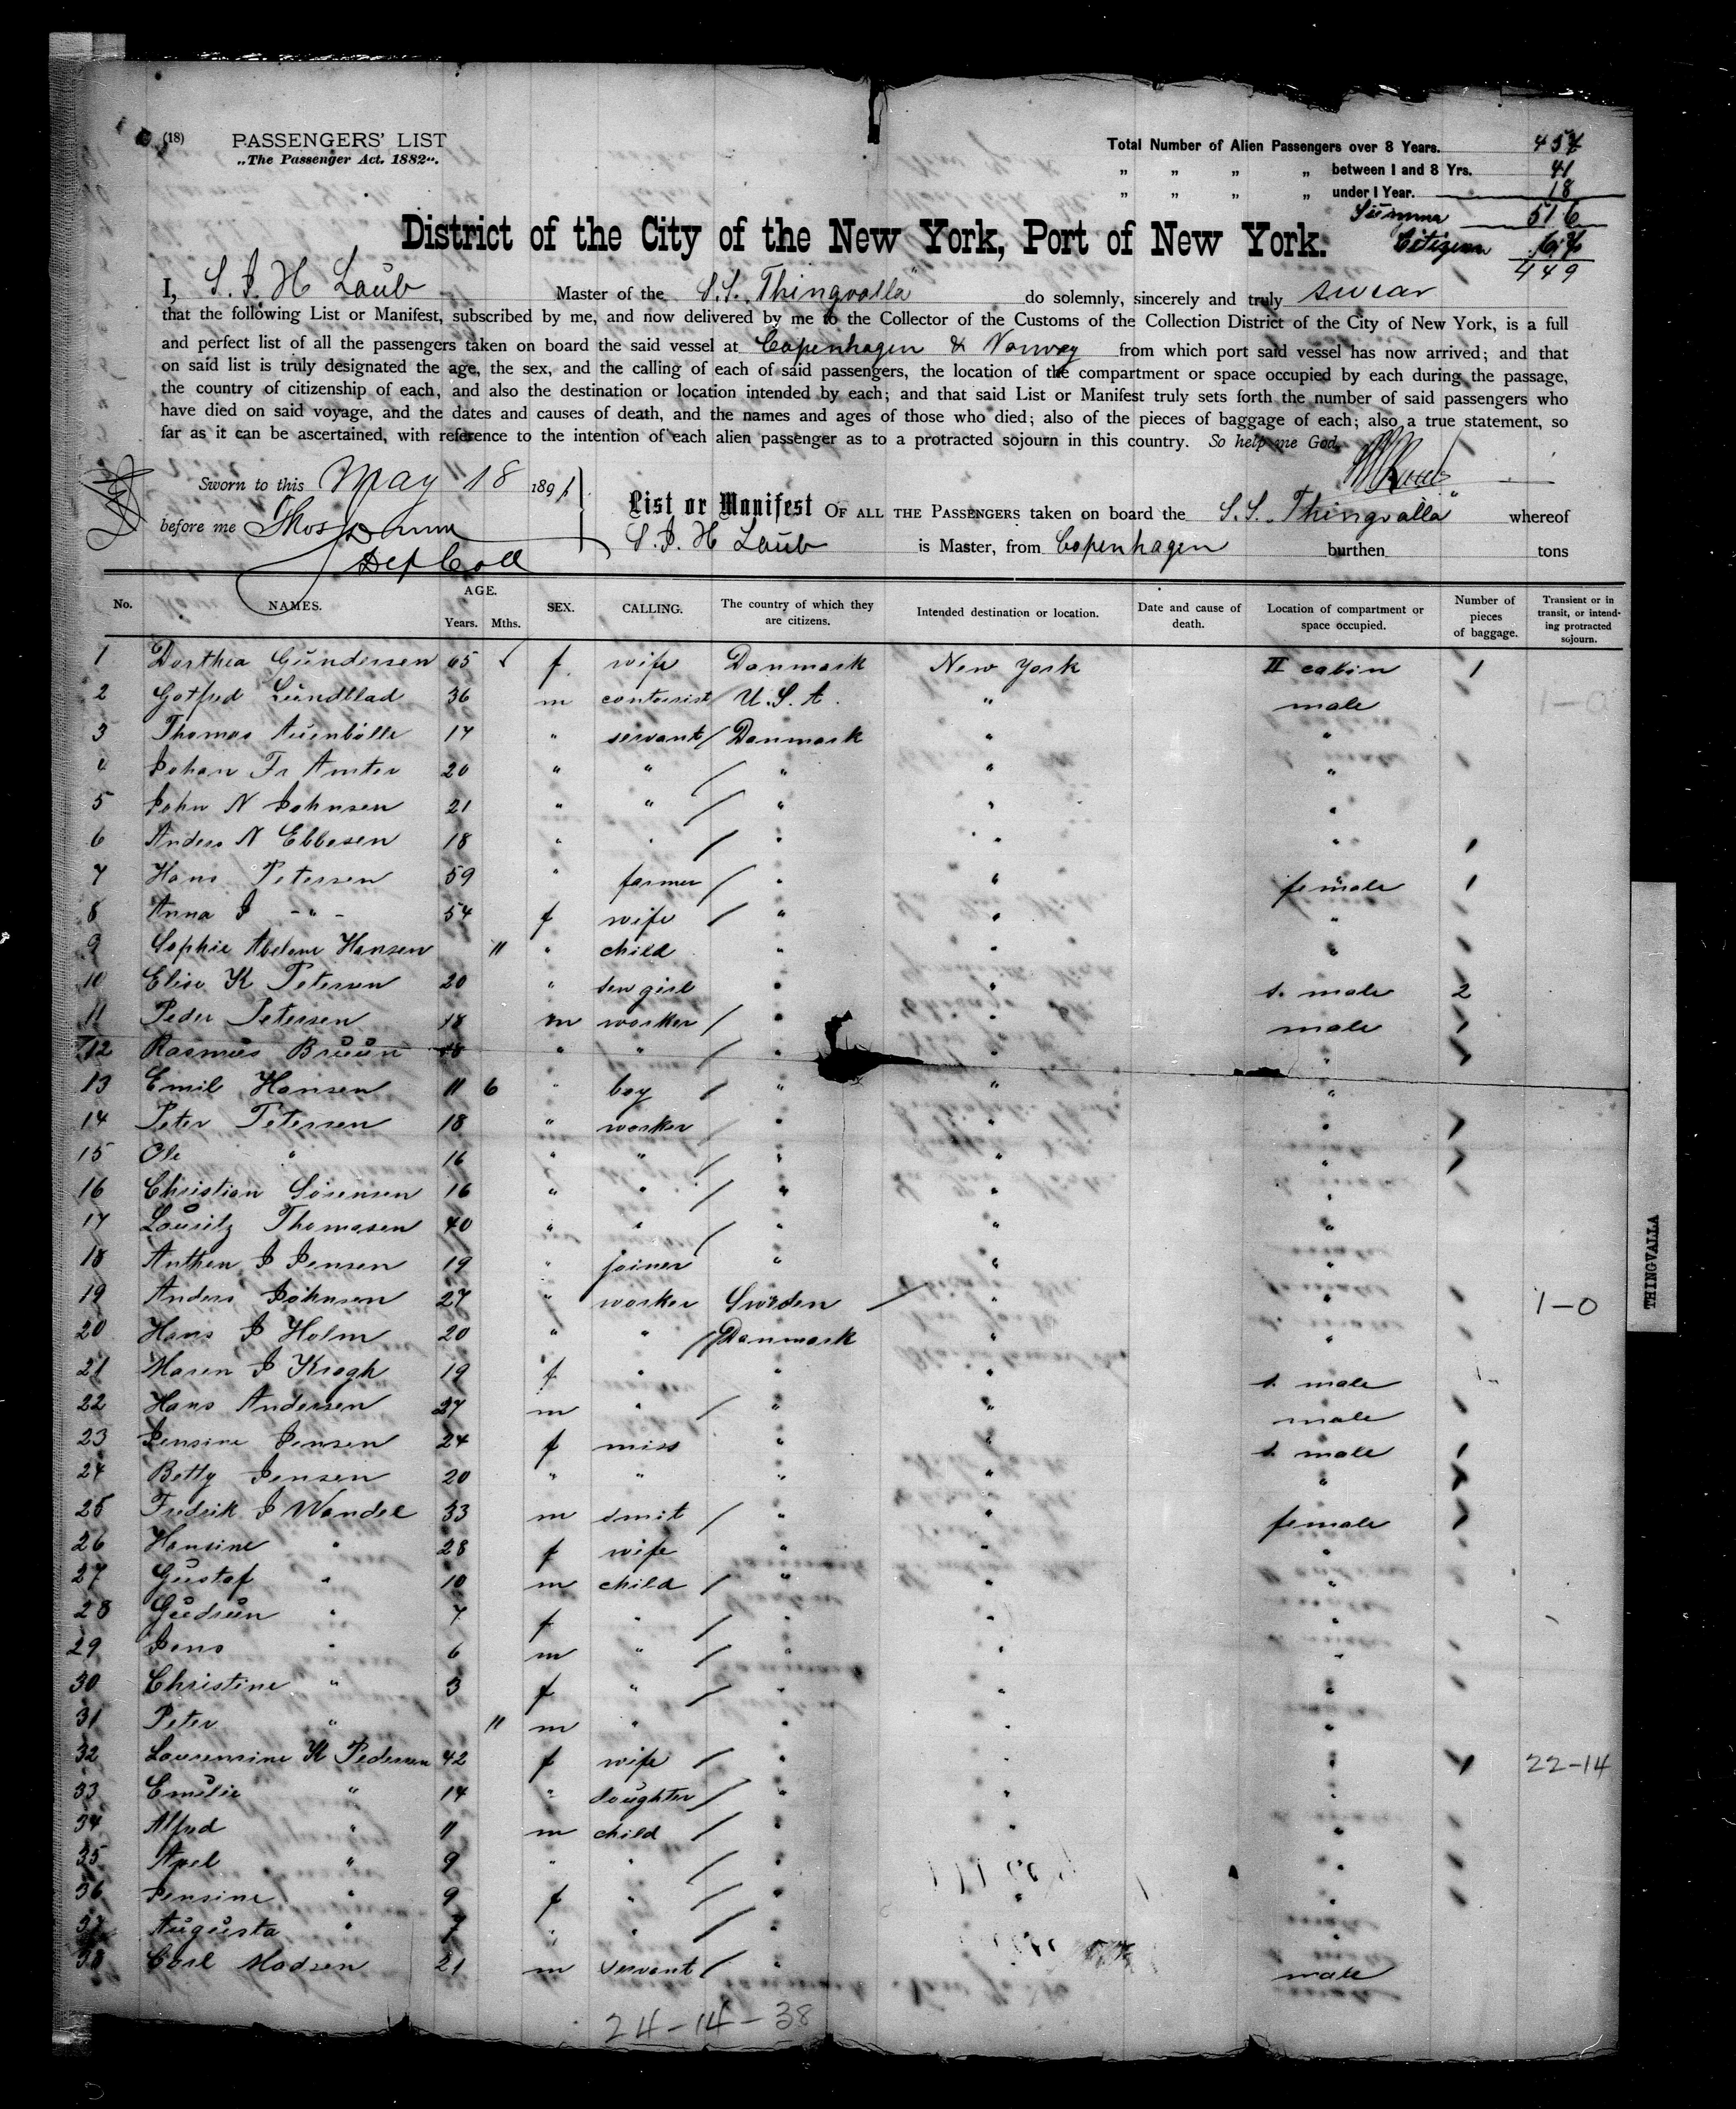 (18) PASSENGERS' LIST
„The Passenger Act, 1882".
Total Number of Alien Passengers over 8 Years. 457
„ „ „ „ between 1 and 8 Yrs. 41
„ „ „ „ under 1 Year. 18
Summa 516
Citizens 67
449
District of the City of the New York, Port of New York.
I, S. J. H Laub Master of the S.S. „Thingvalla" do solemnly, sincerely and truly swear
that the following List or Manifest, subscribed by me, and now delivered by me to the Collector of the Customs of the Collection District of the City of New York, is a full
and perfect list of all the passengers taken on board the said vessel at Copenhagen & Norway from which port said vessel has now arrived; and that
on said list is truly designated the age, the sex, and the calling of each of said passengers, the location of the compartment or space occupied by each during the passage,
the country of citizenship of each, and also the destination or location intended by each; and that said List or Manifest truly sets forth the number of said passengers who
have died on said voyage, and the dates and causes of death, and the names and ages of those who died; also of the pieces of baggage of each; also a true statement, so
far as it can be ascertained, with reference to the intention of each alien passenger as to a protracted sojourn in this country. So help me God.
Sworn to this May 18 1891
before me Thos Dunn
Dep Coll
List or Manifest OF ALL THE PASSENGERS taken on board the S.S. „Thingvalla" whereof
S. J. H Laub is Master, from Copenhagen burthen tons
No. NAMES. AGE. Years. Mths. SEX. CALLING. The country of which they are citizens. Intended destination or location. Date and cause of death. Location of compartment or space occupied. Number of pieces of baggage. Transient or in transit, or intending protracted sojourn.
1 Dorthea Gundersen 65 f wife Danmark New York II cabin 1
2 Gotfred Lundblad 36 m contorist U.S.A. " male 1-0
3 Thomas 17 " servant / Danmark " "
4 Johan Fr Amter 20 " " / " " "
5 John N Johnsen 21 " " / " " "
6 Anders N Ebbesen 18 " " / " " " 1
7 Hans Petersen 59 " farmer / " " female 1
8 Anna J - " - 54 f wife / " " "
9 Sophie Abelone Hansen 11 " child " " "
10 Elise K Petersen 20 " sew girl " " s. male 2
11 Peder Petersen 18 m worker / " " male 1
12 Rasmus Bruun 18 " " / " " " 1
13 Emil Hansen 11 6 " boy / " " "
14 Peter Petersen 18 " worker / " " " 1
15 Ole " 16 " " / " " " 1
16 Christian Sörensen 16 " " / " " "
17 Lauritz Thomasen 40 " " / " " "
18 Anthon J Jensen 19 " joiner " " "
19 Anders Johnsen 27 " worker Sweden / " " 1-0
20 Hans J Holm 20 " " / Danmark " "
21 Maren J Krogh 19 f " " " s. male
22 Hans Andersen 27 m " / " " male
23 Jensine Jensen 24 f miss " " s. male 1
24 Betty Jensen 20 " " " " " 1
25 Fredrik J Wandel 33 m smit / " " female 1
26 Hansine " 28 f wife " " "
27 Gustaf " 10 m child / " " "
28 Gudrun " 7 f " / " " "
29 Jens " 6 m " / " " "
30 Christine " 3 f " / " " "
31 Peter " 11 m " " " "
32 Laurensine K Pedersen 42 f wife / " " " 1 22-14
33 Emilie " 14 " daughter / " " "
34 Alfred " 11 m child / " " "
35 Axel " 9 " " / " "
36 Jensine " 9 f " / " " "
37 Augusta " 7 " " / " "
38 Carl Madsen 21 m servant / " male
24-14-38
THINGVALLA